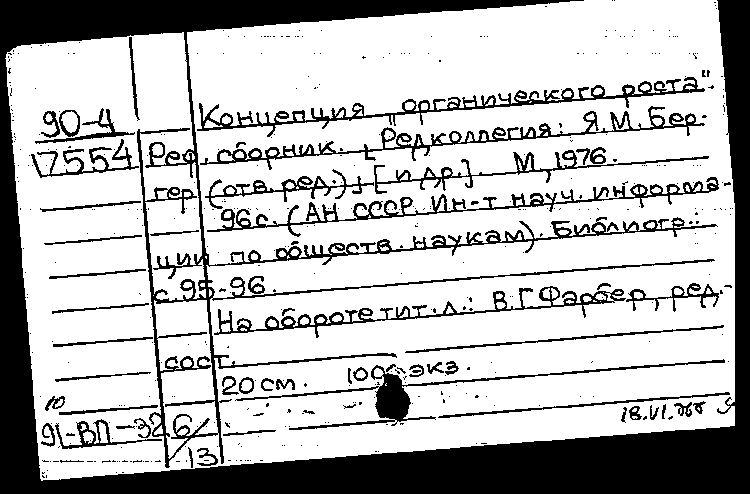 Концепция "органического роста".
90-4
17554
Реф. сборник. [Редколлегия: Я.М. Бер-
гер (отв. ред.)] [и др.]. М, 1976.
96с. (АН СССР. Ин-т науч. информа-
ции по обществ. наукам). Библиогр.:
с. 95-96.
На обороте тит. л.: В.Г. Фарбер, ред.-
сост.
20 см. 1000 экз.
10
91-ВП-32 6/13
18.VI.76